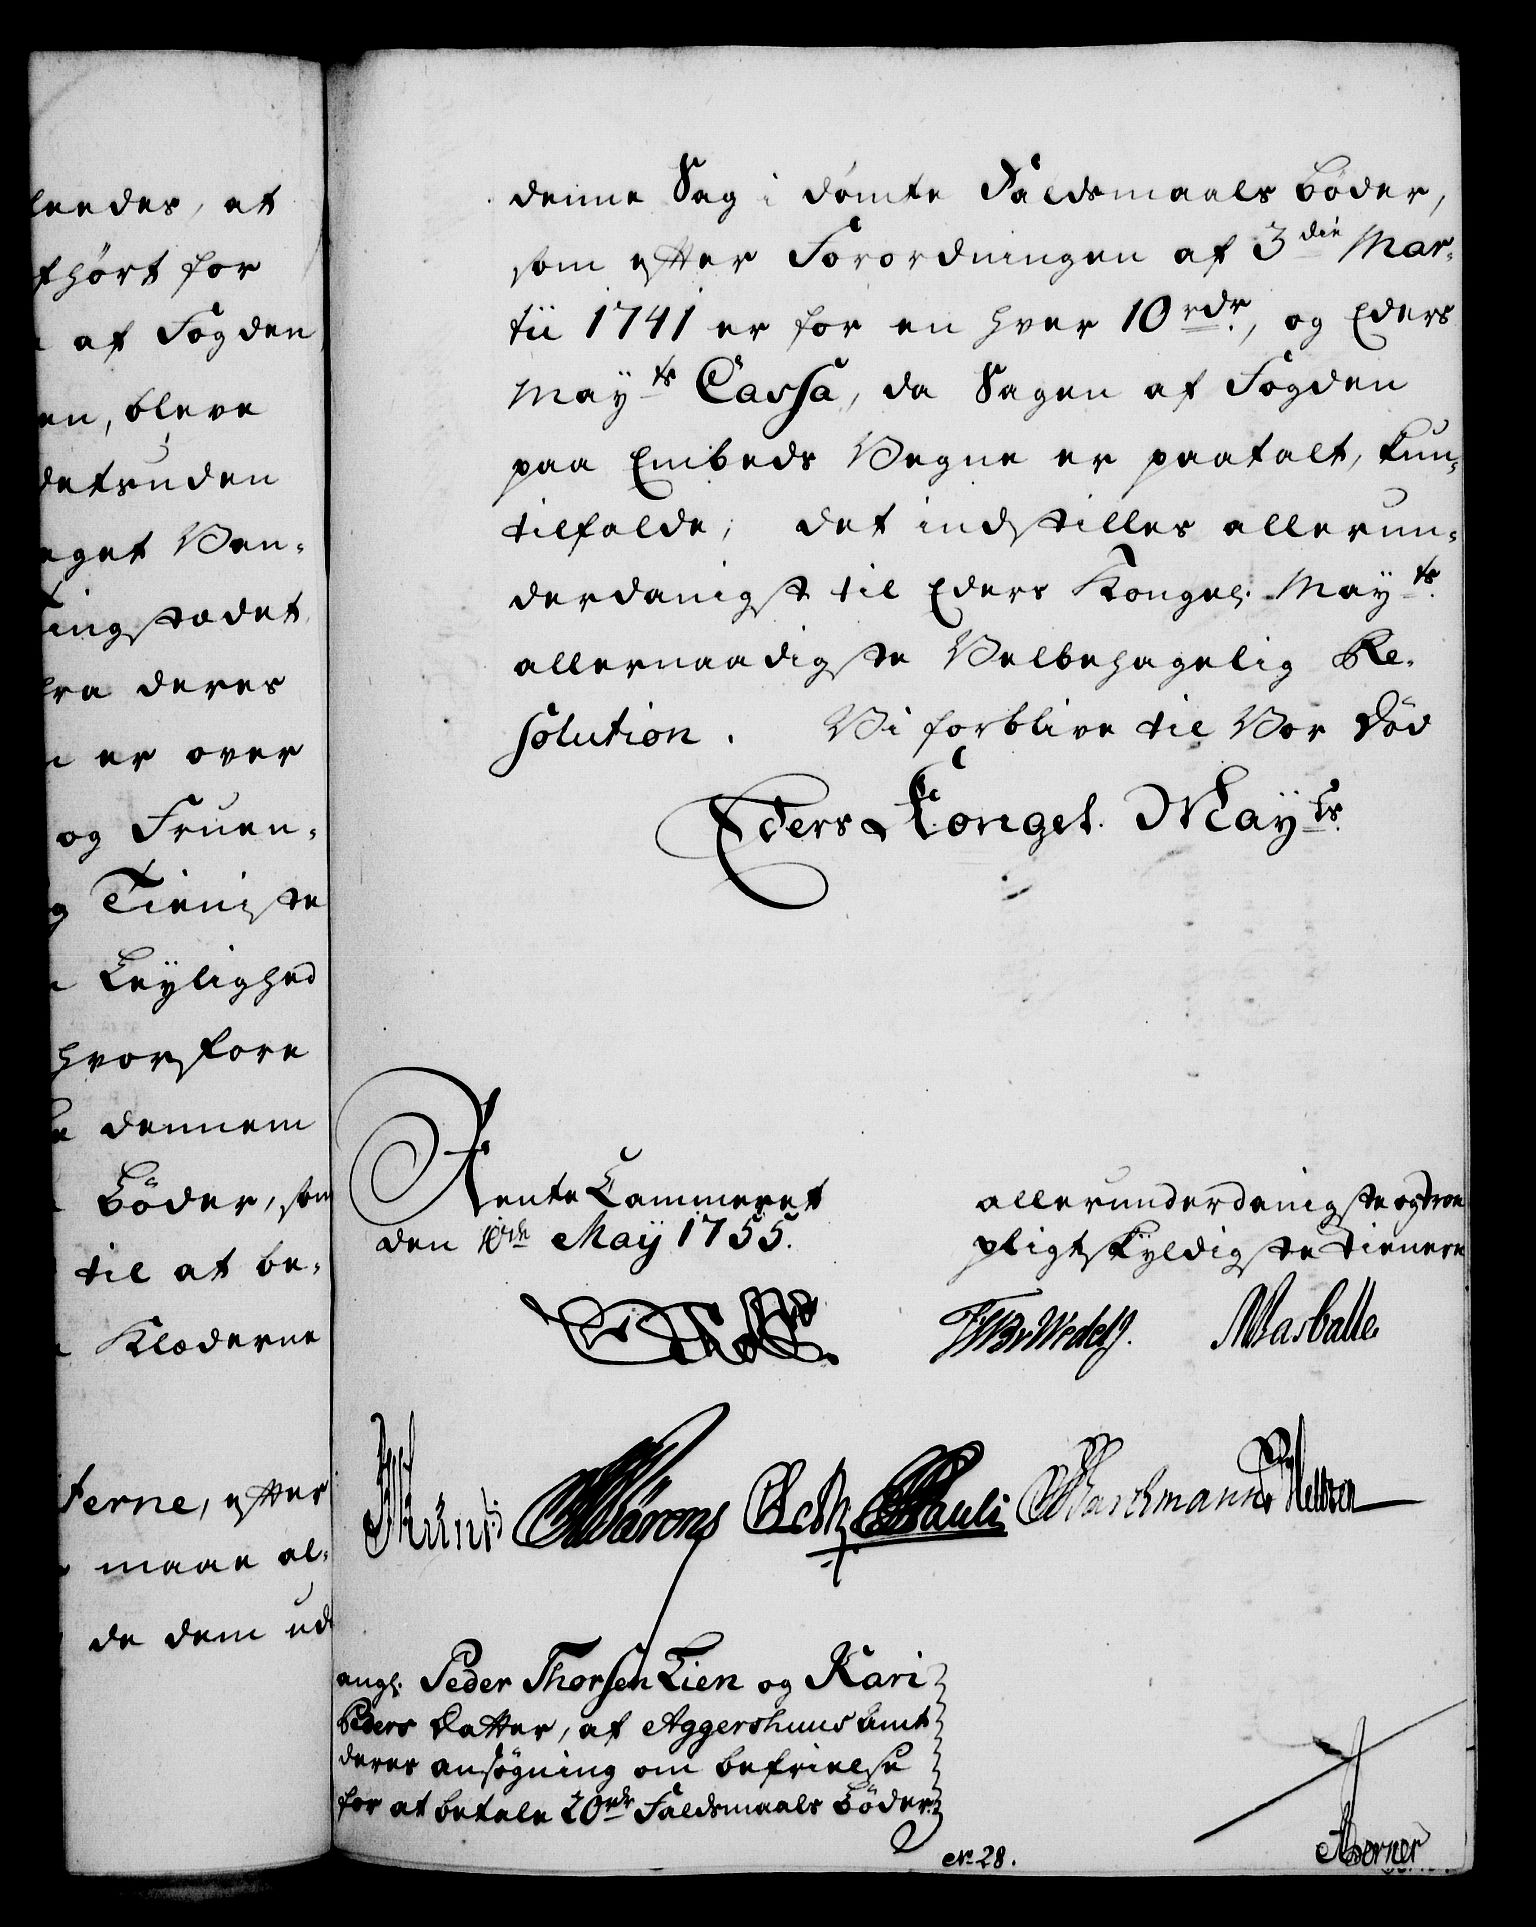 leedes, at
fhört for
af Fogden
en, bleve
eget Ven-
ingstædet
fra deres
er over
og Fruen-
Tieniste
Leylighed
hvorfore
dennem
Böder, som
til at be-
Klæderne
ferne, efter
maae al-
de dem ud
denne Sag i dömte Faldsmaals Böder,
som efter Forordningen af 3die Mar-
tii 1741 er for en hver 10 rdr., og Eders
Mayts Cassa, da Sagen af Fogden
paa Embeds Vegne er paatalt, kun-
tilfalde; det indstilles allerun-
derdanigst til Eders Kongel. Mayts
allernaadigste Velbehagelig Re-
solution. Vi forblive til Vor Död
Eders Kongel. Mayts
Rente Cammeret
den 10de May 1755.
allerunderdanigste og troe
pligtskyldigste Tienere
Wedel J.
Pauli
angl. Peder Thorsen Lien og Kari
Peders Datter, af Aggershuus Amt
deres ansögning om befrielse
for at betale 20 rdr Faldsmaals Böder.
No. 28.